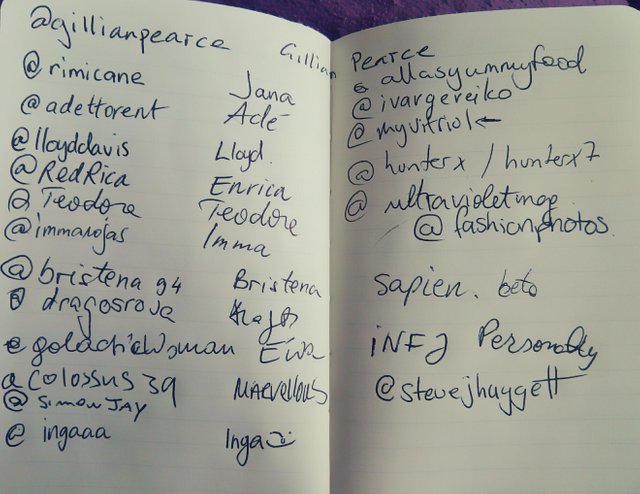 @gillianpearce Gillian Pearce
@rimicane Jana
@adettorent Adé
@lloyddavis Lloyd.
@RedRica Enrica
@Teodore Teodore
@immarojas Imma
@bristena94 Bristena
@dragosroua
@galacticwoman Ewa
@COLOSSUS39 MARVELLOUS
@SIMONJAY
@ingaaa Inga
@allasyummyfood
@ivargereiko
@myvitriol ←
@hunterx / hunterx7
@ultravioletmag
@fashionphotos.
sapien. beto
INFJ Personality
@stevejhuggett